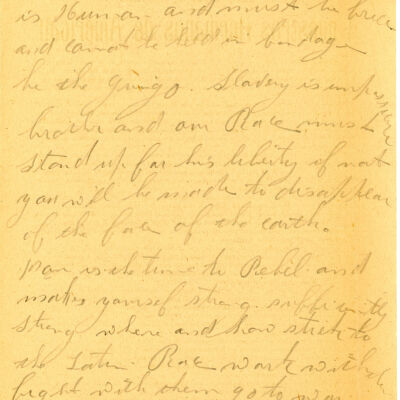 is Human and must be free
and cannot be held in bondage
be the gringo. Slavery is impossible
brother and our Race must
stand up for his liberty if not
you will be made to disappear
of the face of the earth.
is the time to Rebel and
yourself strong sufficiently
strong where and how
the Latin Race work with
fight with them go to war